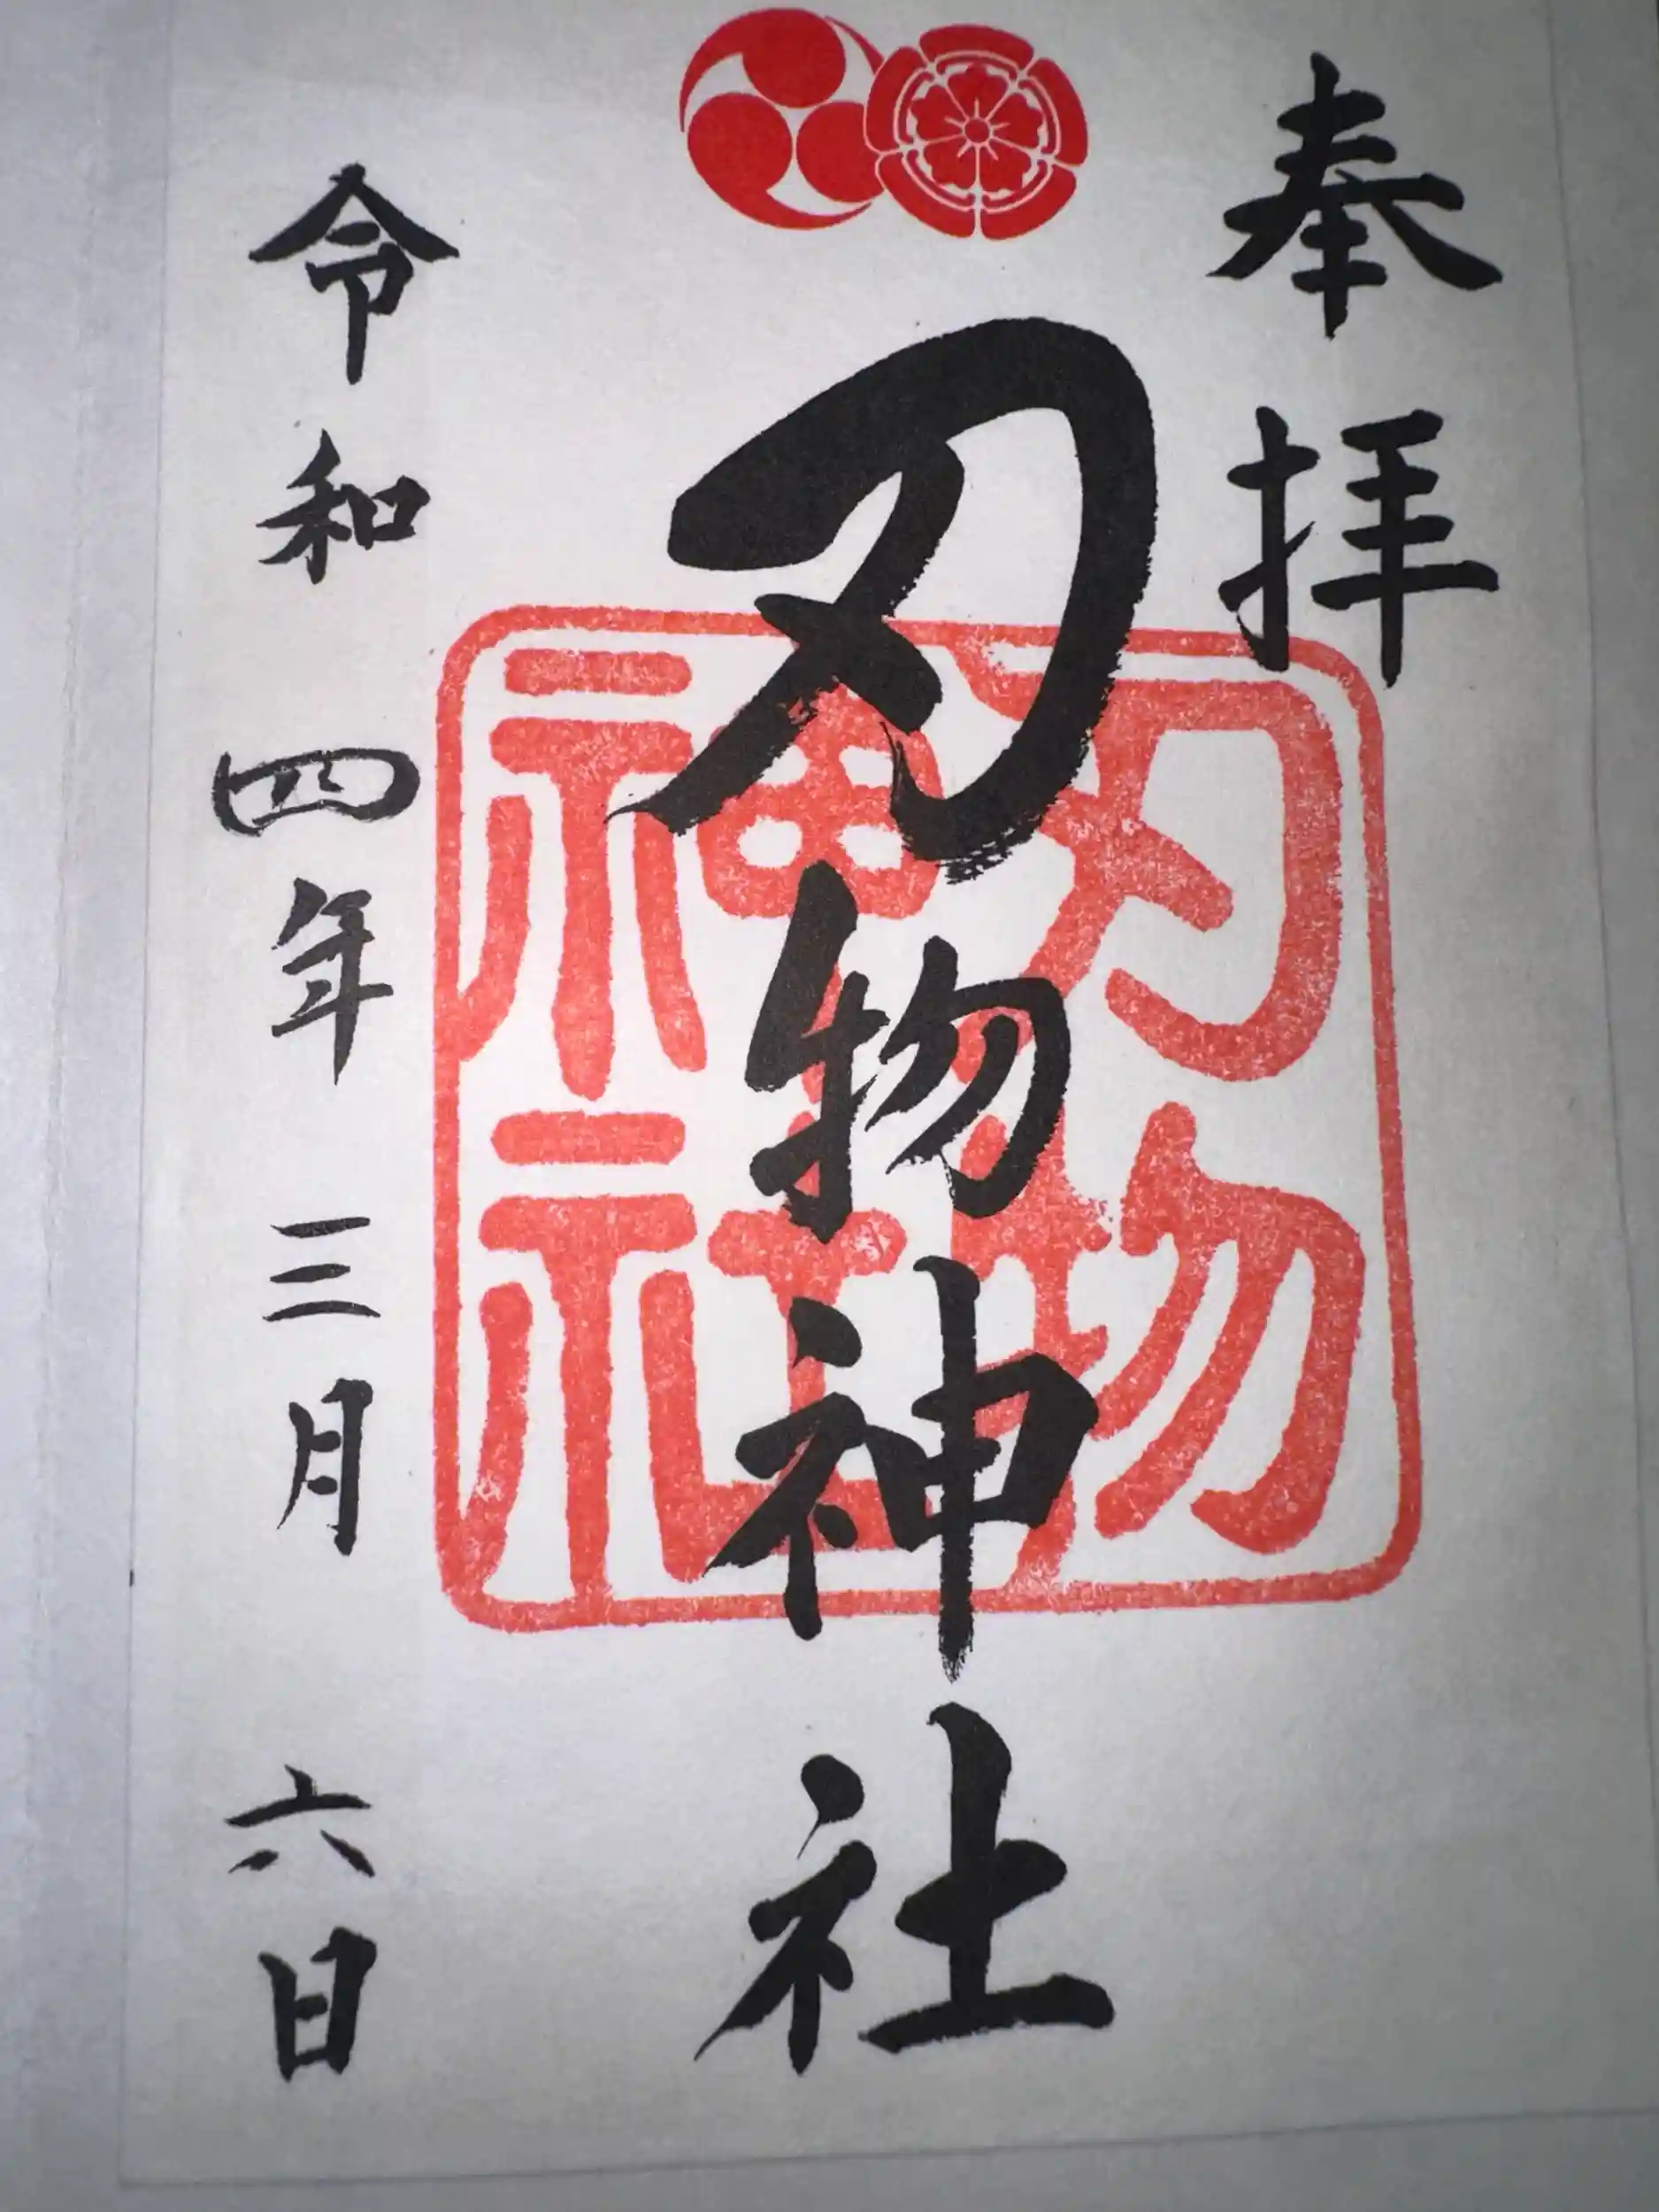 奉拝
刃物神社
刃物
神社
令和四年三月六日